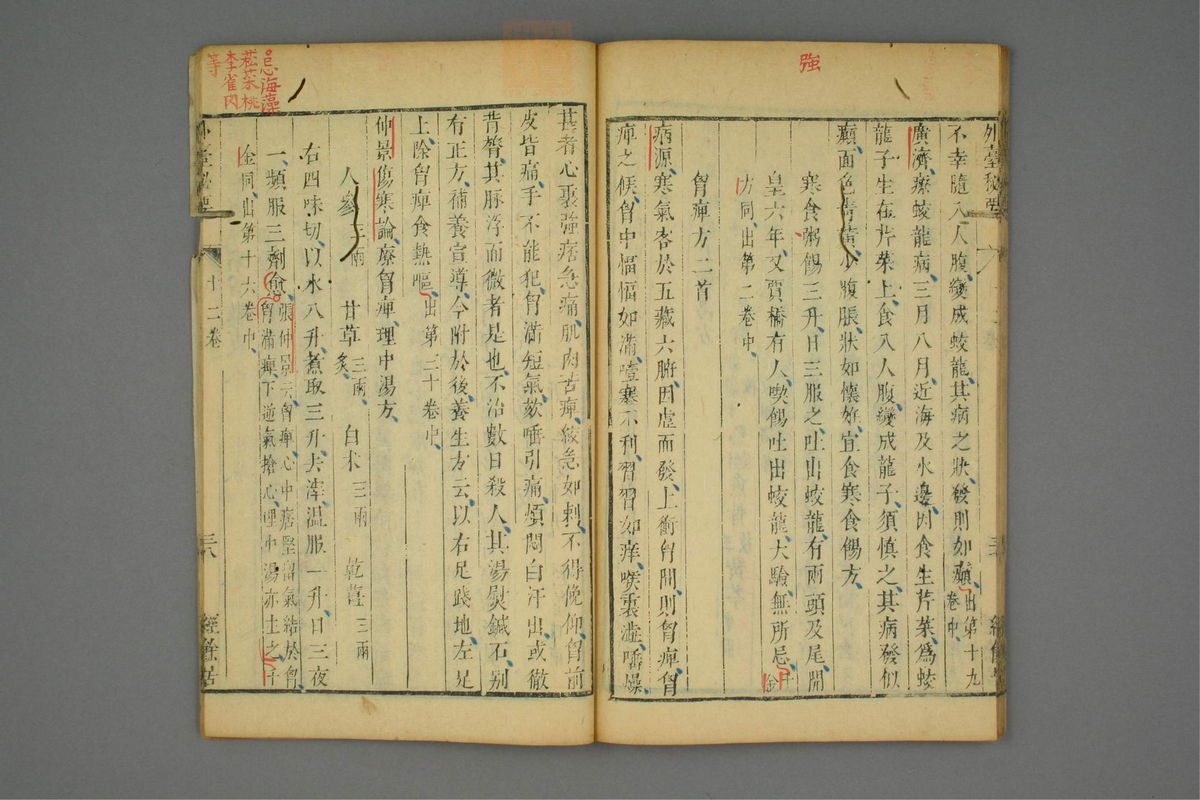 強
外臺秘要
不幸隨入人腹變成蛟龍其病之狀發則如癲出第十九卷中
廣濟療蛟龍病三月八月近海及水邊因食生芹菜爲蛟
龍子生在芹菜上食入人腹變成龍子須慎之其病發似
癲面色青黃少腹脹狀如懷妊宜食寒食餳方
寒食粥餳三升日三服之吐出蛟龍有兩頭及尾開
皇六年又賈橋有人喫餳吐出蛟龍大驗無所忌千金
方同出第二卷中
胷痺方二首
病源寒氣客於五藏六腑因虛而發上衝胷間則胷痺胷
痺之候胷中愊愊如滿噎塞不利習習如痒喉裏澁唾燥
甚者心裏強痞急痛肌肉苦痺絞急如刺不得俛仰胷前
皮皆痛手不能犯胷滿短氣欬唾引痛煩悶白汗出或徹
背膂其脉浮而微者是也不治數日殺人其湯熨鍼石別
有正方補養宣導今附於後養生方云以右足踐地左足
上除胷痺食熱嘔出第三十卷中
仲景傷寒論療胷痺理中湯方
人參三兩 甘草三兩炙 白术三兩 乾薑三兩
右四味切以水八升煮取三升去滓温服一升日三夜
一頻服三劑愈張仲景云胷痺心中痞堅留氣結於胷
胷滿痺下逆氣搶心理中湯亦主之千
金同出第十六卷中
外臺秘要
十二卷
三八
經餘居
忌海藻
菘菜桃
李雀肉
等